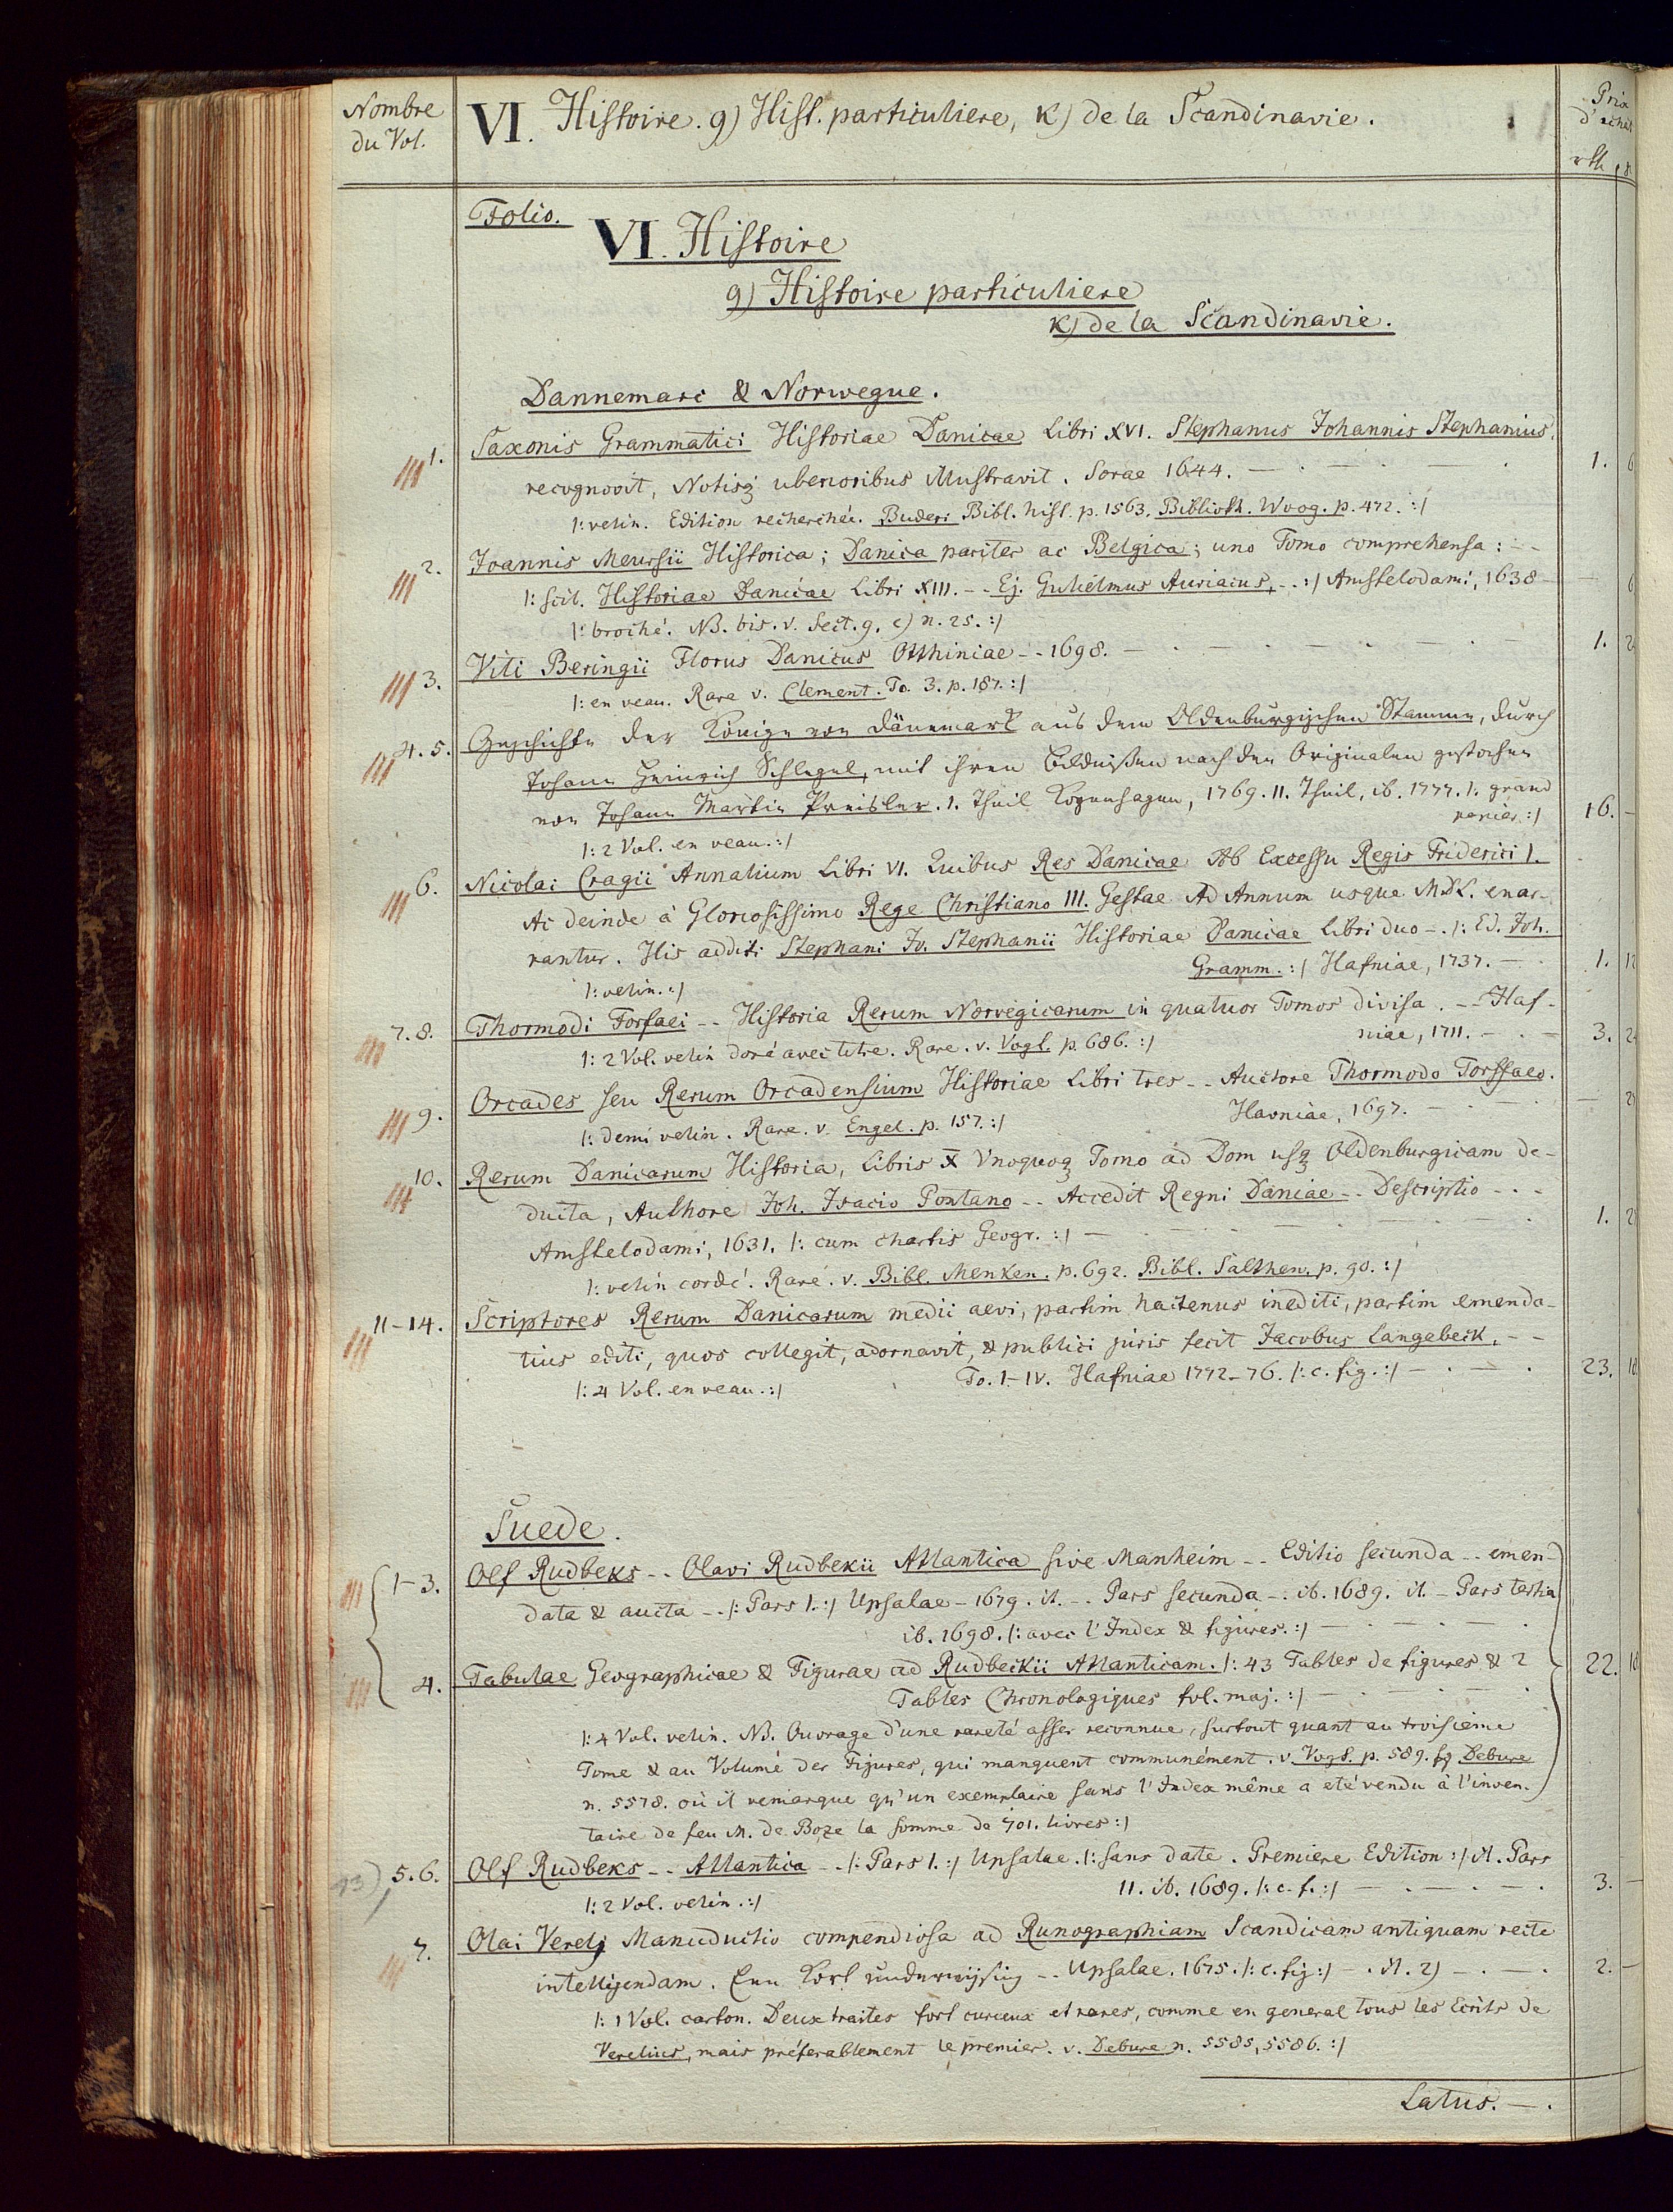 Nombre
du Vol.
VI. Histoire. g) Hist. particuliere, k) de la Scandinavie.
Prix
d'achat
rth
Folio.
VI. Histoire
g) Histoire particuliere
k) de la Scandinavie.
Dannemarc & Norwegue.
1. Saxonis Grammatici Historiae Danicae Libri XVI. Stephanus Johannis Stephanius
recognovit, Notisq; uberioribus illustravit. Sorae 1644. — . — . — . 1. 6
|: velin. Edition recherchée. Buderi Bibl. hist. p. 1563. Biblioth. Woog. p. 472. :|
2. Joannis Meursii Historica; Danica pariter ac Belgica; uno Tomo comprehensa: - -
|: scil. Historiae Danicae Libri XIII. - - Ej. Gulielmus Auriacus, - - :| Amstelodami, 1638 — — 6
|: broché. NB. bis. v. Sect. g. c) n. 25. :|
3. Viti Beringii Florus Danicus Otthiniae - - 1698. — . — . — . — 1. 2
|: en veau. Rare v. Clement. To. 3. p. 187. :|
4. 5. Geschichte der Könige von Dänemark aus dem Oldenburgischen Stamme, durch
Johann Heinrich Schlegel, mit ihren Bildnißen nach den Originalen gestochen
von Johann Martin Preisler. 1. Theil Kopenhagen, 1769. II. Theil, ib. 1777. |: grand
papier :| 16. —
|: 2 Vol. en veau. :|
6. Nicolai Cragii Annalium Libri VI. Quibus Res Danicae Ab Excessu Regis Friderici I.
Ac deinde à Gloriosissimo Rege Christiano III. Gestae Ad Annum usque MDL. enar-
rantur. His additi Stephani Jo. Stephanii Historiae Danicae Libri duo - . |: Ed. Joh.
Gramm. :| Hafniae, 1737. — . 1. 12
|: velin. :|
7. 8. Thormodi Torfaei - - Historia Rerum Norvegicarum in quatuor Tomos divisa. - - Haf-
niae, 1711. — . — 3. 2
|: 2 Vol. velin doré avec titre. Rare. v. Vogt. p. 686. :|
9. Orcades seu Rerum Orcadensium Historiae Libri tres - - Auctore Thormodo Torffaeo.
Havniae, 1697. — . — . — 2
|: demi velin. Rare. v. Engel. p. 157. :|
10. Rerum Danicarum Historia, Libris X Vnoquoq; Tomo ad Dom usq; Oldenburgicam de-
ducta, Authore Joh. Isacio Pontano - - Accedit Regni Daniae - - Descriptio - - -
Amstelodami, 1631. |: cum chartis Geogr. :| — . — . — . 1. 2
|: velin cordé. Rare. v. Bibl. Menken. p. 692. Bibl. Salthen. p. 90. :|
11-14. Scriptores Rerum Danicarum medii aevi, partim hactenus inediti, partim emenda-
tius editi, quos collegit, adornavit, & publici juris fecit Jacobus Langebeck. - -
To. I-IV. Hafniae 1772-76. |: c. fig. :| — . — . 23. 18
|: 4 Vol. en veau. :|
Suede.
1-3. Olf Rudbeks - - Olavi Rudbekii Atlantica sive Manheim - - Editio secunda - - emen-
data & aucta - - |: Pars I. :| Upsalae - 1679. it. - - Pars secunda - . ib. 1689. it. - Pars tertia
ib. 1698. |: avec l'Index & figures. :| — . — . — .
4. Tabulae Geographicae & Figurae ad Rudbeckii Atlanticam. |: 43 Tables de figures & 2 22.
Tables Chronologiques fol. maj. :| — . — . — .
|: 4 Vol. velin. NB. Ouvrage d'une rareté assez reconnue, surtout quant au troisième
Tome & au Volume des Figures, qui manquent communément. v. Vogt. p. 589. sq Debure
n. 5578. où il remarque qu'un exemplaire sans l'Index même a eté vendu à l'inven-
taire de feu M. de Boze la somme de 701. livres :|
5. 6. Olf Rudbeks - - Atlantica - - |: Pars I. :| Upsalae. |: sans date. Premiere Edition :| it. Pars
II. ib. 1689. |: c. f. :| — . — . — . 3. —
|: 2 Vol. velin. :|
7. Olai Verelj Manuductio compendiosa ad Runographiam Scandicam antiquam recte
intelligendam. Een Kort Underwijsing - - Upsalae. 1675. |: c. fig :| — . it. 2) — . — . 2. —
|: 1 Vol. carton. Deux traites fort curieux et rares, comme en general tous les Ecrits de
Verelius, mais préferablement le premier. v. Debure n. 5585, 5586. :|
Latus. — .